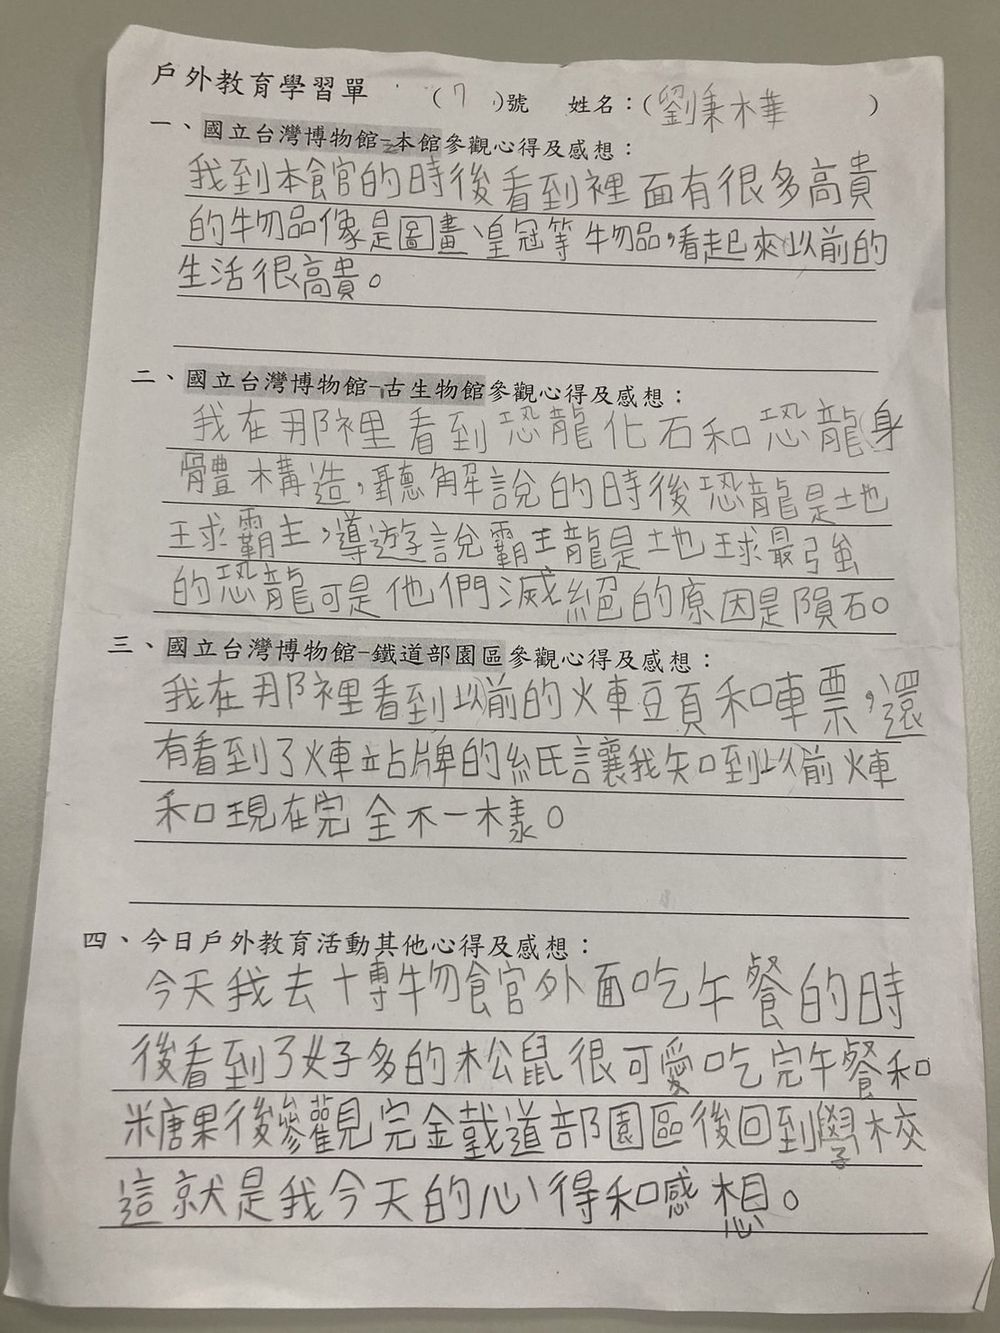 戶外教育學習單 (7)號 姓名：(劉秉樺)
一、國立台灣博物館-本館參觀心得及感想：
我到本館的時後看到裡面有很多高貴
的物品像是圖畫、皇冠等物品，看起來以前的
生活很高貴。
二、國立台灣博物館-古生物館參觀心得及感想：
我在那裡看到恐龍化石和恐龍身
體構造，聽解說的時後恐龍是地
球霸主，導遊說霸王龍是地球最強
的恐龍可是他們滅絕的原因是隕石。
三、國立台灣博物館-鐵道部園區參觀心得及感想：
我在那裡看到以前的火車頭和車票，還
有看到了火車站牌的紙讓我知到以前火車
和現在完全不一樣。
四、今日戶外教育活動其他心得及感想：
今天我去博物館外面吃午餐的時
後看到了好多的松鼠很可愛吃完午餐和
糖果後參觀完鐵道部園區後回到學校
這就是我今天的心得和感想。